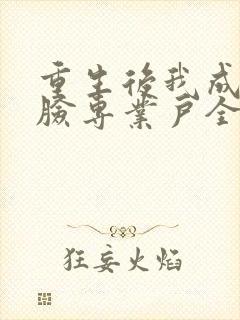 重生後我成
臉專業戶全
狂妄火焰